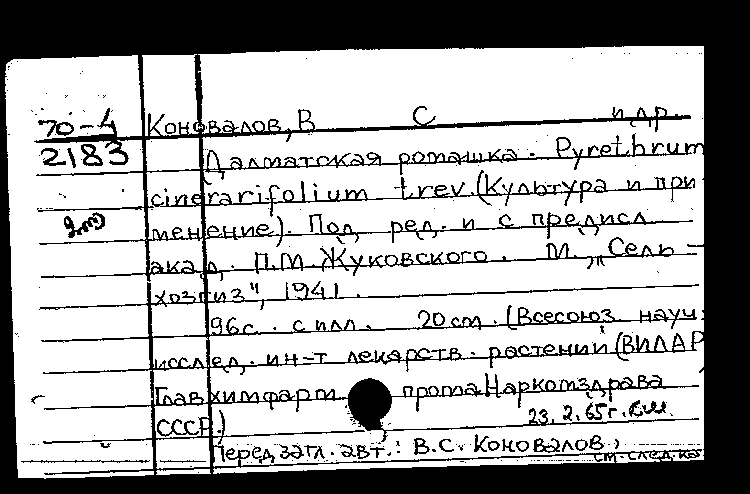 70-4 Коновалов, В С и др.
2183 Далматская ромашка. Pyrethrum
cinerarifolium trev. (Культура и при
менение). Под ред. и с предисл
акад. П.М. Жуковского. М., „Сель-
хозгиз", 1941.
96с. с илл. 20 cm. (Всесоюз. науч.
исслед. ин-т лекарств. растений (ВИЛАР
Главхимфарм прома Наркомздрава
СССР.)
23.2.65г.
Перед загл. авт.: В.С. Коновалов,
см. след. ка